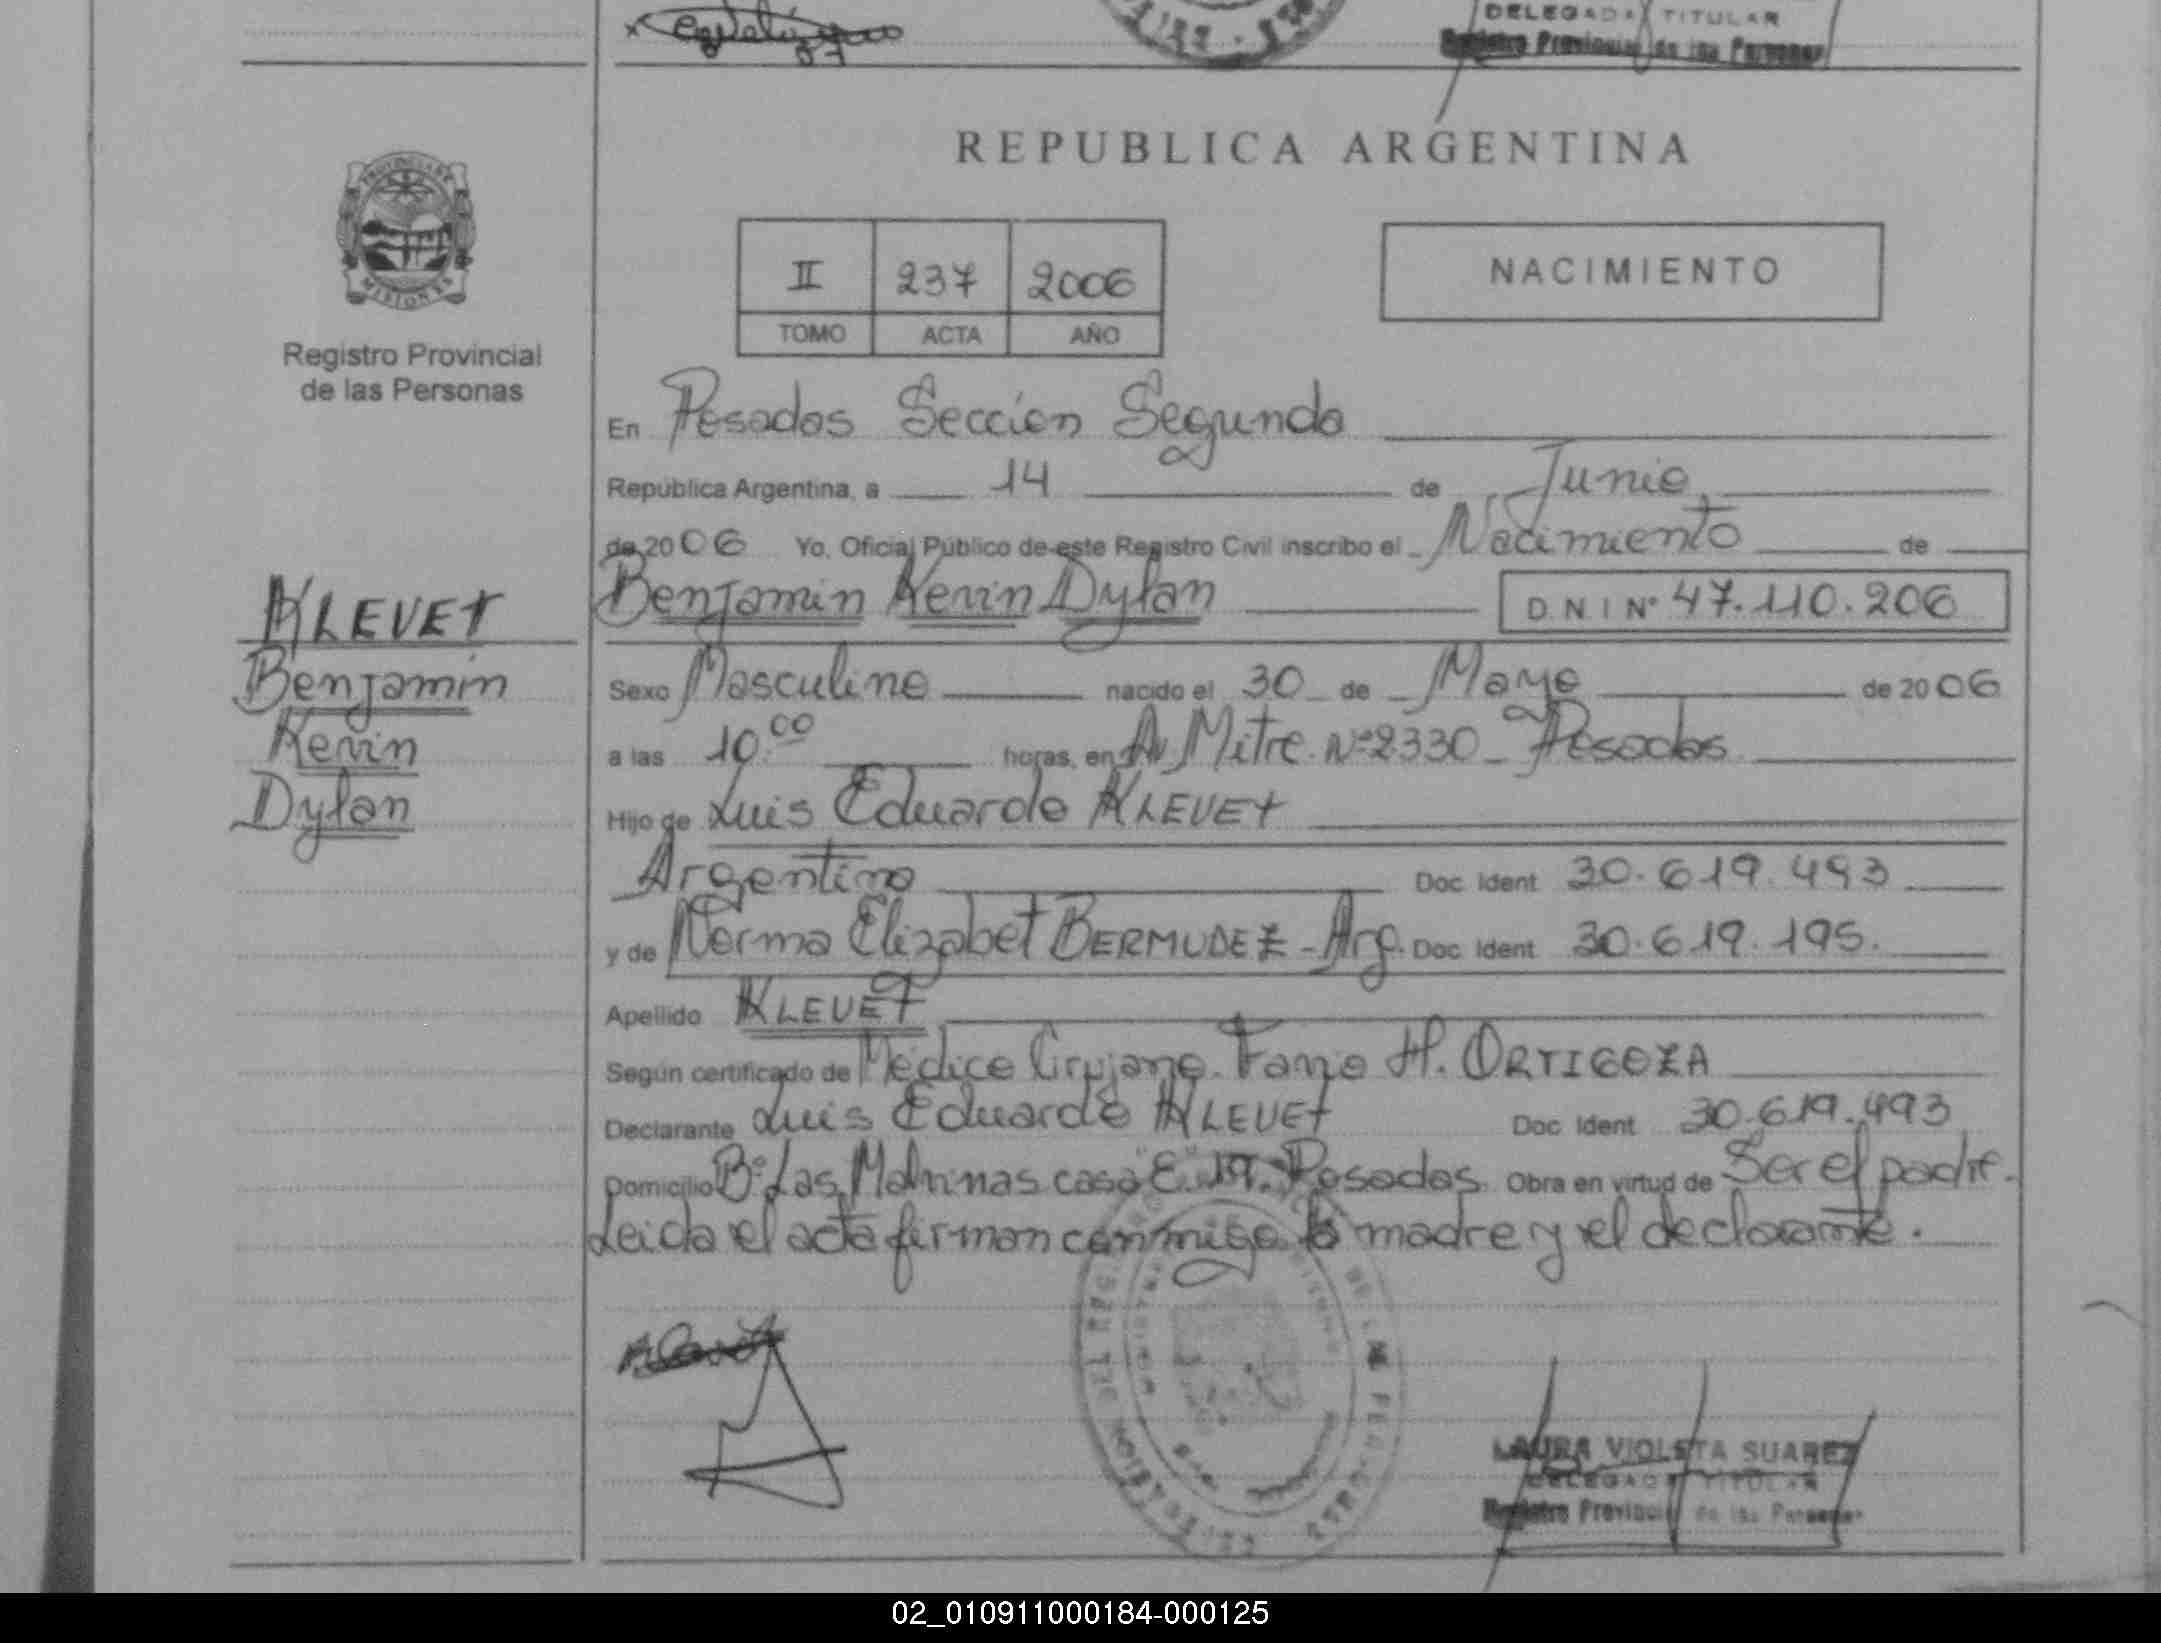 DELEGADA TITULAR
Registro Provincial de las Personas
REPUBLICA ARGENTINA
PROVINCIA DE
MISIONES
Registro Provincial
de las Personas
II 237 2006
TOMO ACTA AÑO
NACIMIENTO
En Posadas Sección Segunda
República Argentina, a 14 de Junio
de 2006 Yo, Oficial Público de este Registro Civil inscribo el Nacimiento de
Benjamin Kevin Dylan D.N.I Nº 47.110.206
KLEVET
Benjamin
Kevin
Dylan
Sexo Masculino nacido el 30 de Mayo de 2006
a las 10.00 horas, en Av Mitre Nº 2330 - Posadas
Hijo de Luis Eduardo KLEVET
Argentino Doc Ident 30.619.493
y de Norma Elizabet BERMUDEZ - Arg. Doc Ident 30.619.195.
Apellido KLEVET
Según certificado de Médico Cirujano H. ORTIGOZA
Declarante Luis Eduardo KLEVET Doc Ident 30.619.493
Domicilio Bº Las Malvinas casa "E" 19. Posadas Obra en virtud de Ser el padre.
Leida el acta firman conmigo la madre y el declarante.
LAURA VIOLETA SUAREZ
DELEGADA TITULAR
Registro Provincial de las Personas
02_010911000184-000125